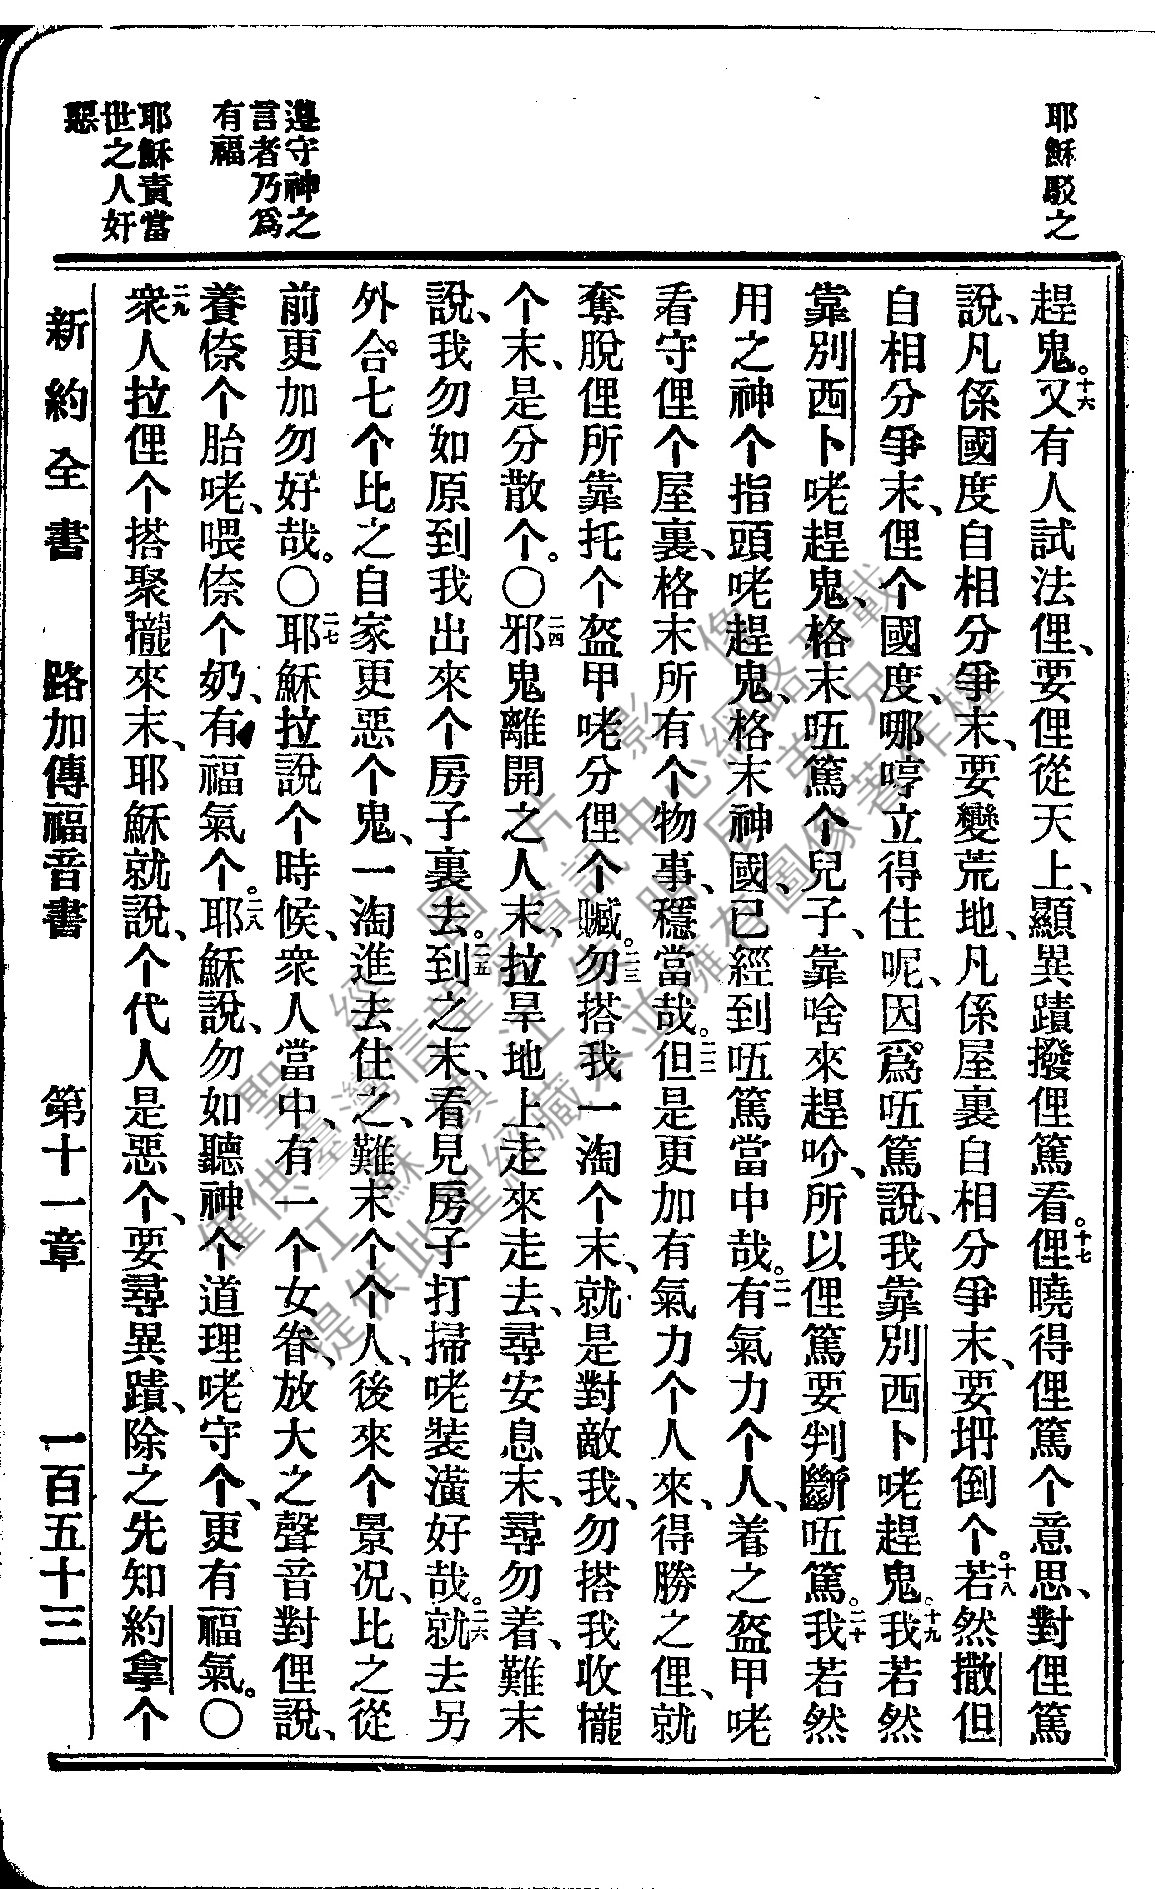 耶穌駁之
遵守神之
言者乃爲
有福
耶穌責當
世之人奸
惡
趕鬼。十六又有人試法俚、要俚從天上、顯異蹟撥俚篤看。十七俚曉得俚篤个意思、對俚篤
說、凡係國度自相分爭末、要變荒地、凡係屋裏自相分爭末、要坍倒个。十八若然撒但
自相分爭末、俚个國度、哪哼立得住呢、因爲㕶篤說、我靠別西卜咾趕鬼。十九我若然
靠別西卜咾趕鬼、格末㕶篤个兒子、靠啥來趕吤、所以俚篤要判斷㕶篤。二十我若然
用之神个指頭咾趕鬼、格末神國、已經到㕶篤當中哉。二一有氣力个人、着之盔甲咾
看守俚个屋裏、格末所有个物事、穩當哉。二二但是更加有氣力个人來、得勝之俚、就
奪脫俚所靠托个盔甲咾分俚个贓。二三勿搭我一淘个末、就是對敵我、勿搭我收攏
个末、是分散个。〇二四邪鬼離開之人末、拉旱地上走來走去、尋安息末、尋勿着、難末
說、我勿如原到我出來个房子裏去。二五到之末、看見房子打掃咾裝潢好哉。二六就去另
外合七个比之自家更惡个鬼、一淘進去住之、難末个个人、後來个景况、比之從
前更加勿好哉。〇二七耶穌拉說个時候、衆人當中、有一个女眷、放大之聲音對俚說、
養倷个胎咾、喂倷个奶、有福氣个。二八耶穌說、勿如聽神个道理咾守个、更有福氣。〇
二九衆人拉俚个搭聚攏來末、耶穌就說、个代人是惡个、要尋異蹟、除之先知約拿个
新約全書 路加傳福音書 第十一章 一百五十三
聖經圖片影像
僅供臺灣信望愛資訊中心網路刊載
江蘇鎮江朱明居弟兄
提供此聖經藏本並擁有圖像著作權